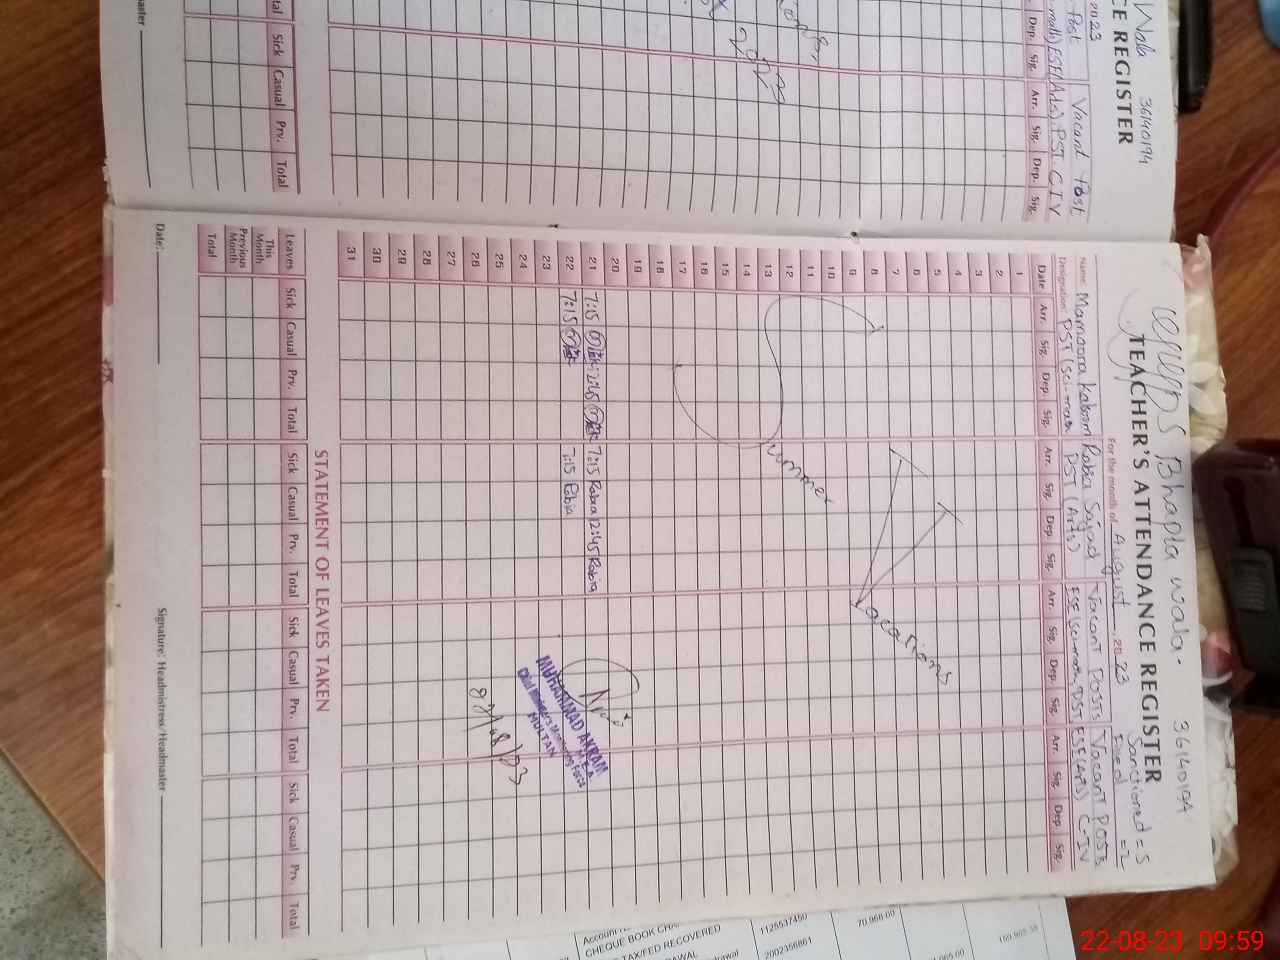 Wala 36140194
CE REGISTER
2023
Post Vacant Post
ESE(Arts), PST, C.IV
Dep. Sig. Arr. Sig. Dep. Sig.
2023
Sick Casual Prv. Total
Bhapla wala. 36140194
TEACHER'S ATTENDANCE REGISTER
Sanctioned = 5
For the month of August 2023
= 2
Name: Rabia Sajad Vacant Posts Vacant Posts
Designation: PST (Sci-math PST (Arts) ESE(Sci-math, PST ESE(Arts) C-IV
Date Arr. Sig. Dep. Sig. Arr. Sig. Dep. Sig. Arr. Sig. Dep. Sig. Arr. Sig. Dep. Sig.
1
2
3
4
5
6
7
8
9
10
11
12
13
14
15
16
17
18
19
20
21 7:15 12:45 7:15 Rabia 12:45 Rabia
22 7:15 7:15 Rabia
23
24
25
26
27
28
29
30
31
Summer
Vacations
MUHAMMAD AKRAM
M.E.A
Chief Minister's Monitoring Force
MULTAN
STATEMENT OF LEAVES TAKEN
Leaves Sick Casual Prv. Total Sick Casual Prv. Total Sick Casual Prv. Total Sick Casual Prv. Total
This Month
Previous Month
Total
Date: Signature: Headmistress/Headmaster
CHEQUE BOOK
TAX/FED RECOVERED
1125537450
2002356861
70,968.00
22-08-23 09:59